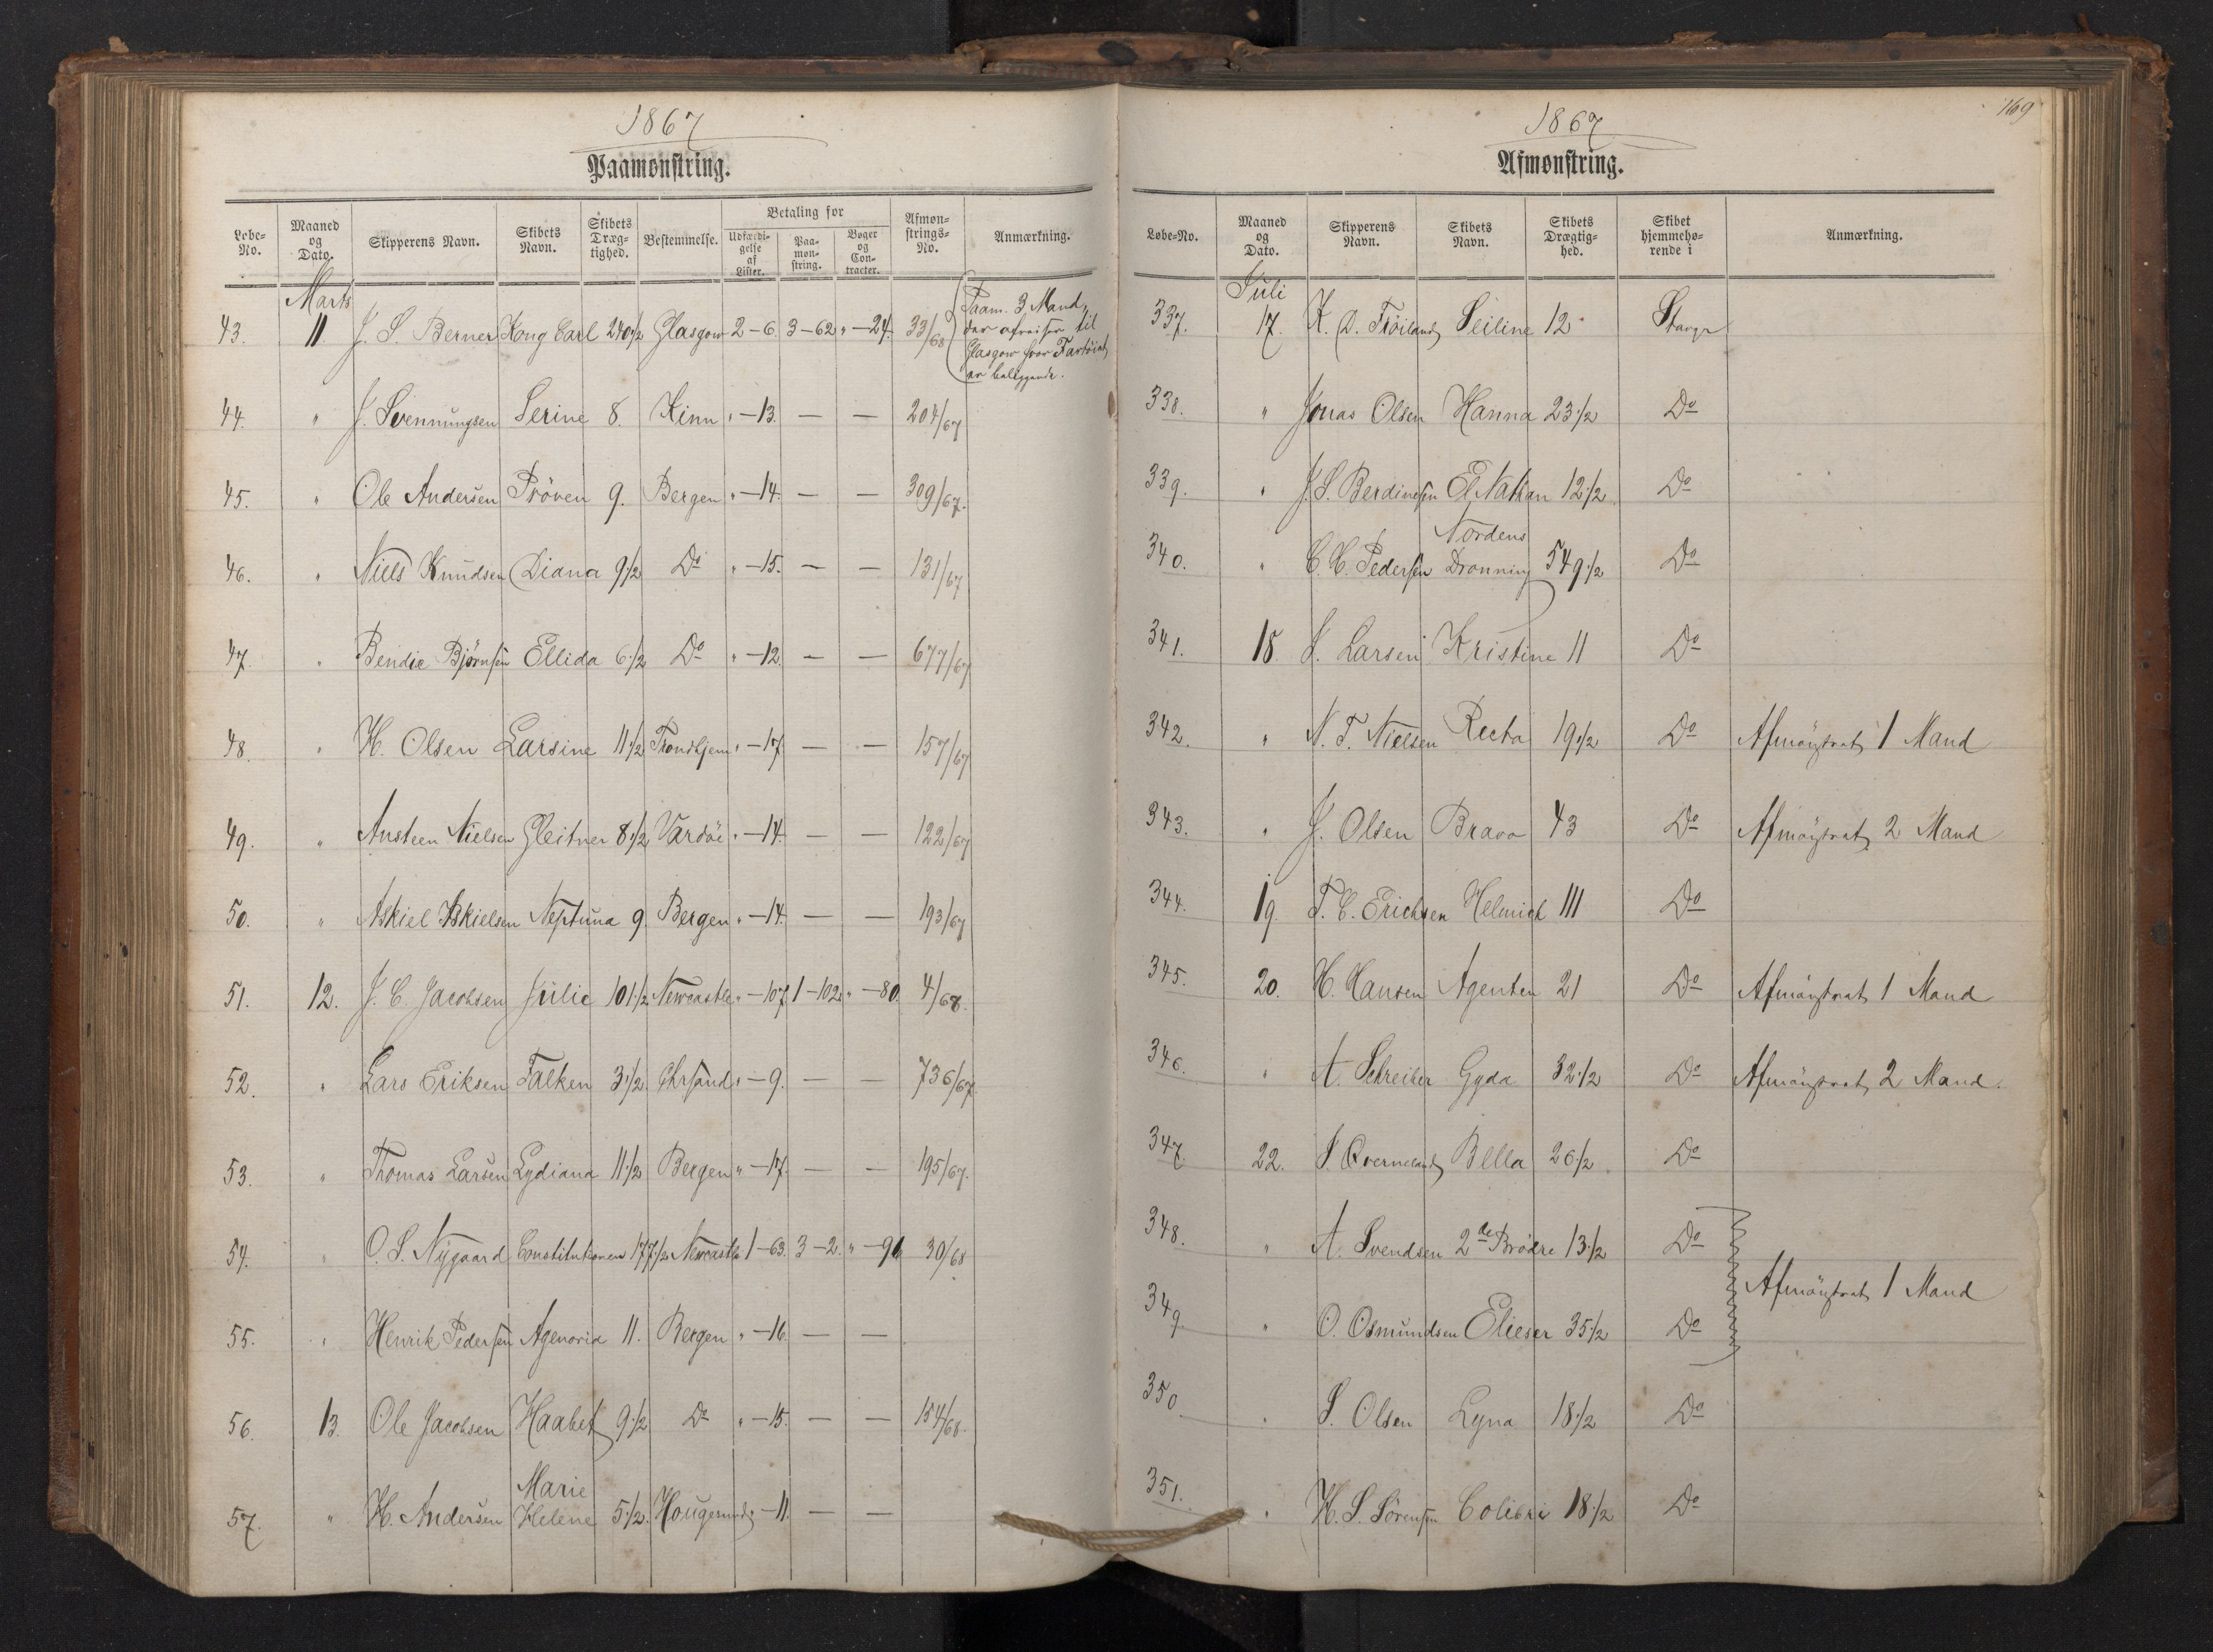 1867
Paamønstring.
Løbe-No. Maaned og Dato. Skipperens Navn. Skibets Navn. Skibets Dræg-tighed. Bestemmelse. Betaling for Udfærdi-gelse af Lister. Paa-møn-string. Bøger og Con-tracter. Afmøn-strings-No. Anmærkning.
Marts
43. 11. J. S. Berner Kong Carl 240 1/2 Glasgow 2-6. 3-62 " -24. 33/68 Paam. 3 Mand, der afreiser til Glasgow hvor Fartöiet er beliggende.
44. " J. Svennungsen Serine 8. Kinn " -13. — — 204/67
45. " Ole Andersen Pröven 9. Bergen " -14. — — 309/67.
46. " Niels Knudsen Diana 9 1/2 Do " -15. — — 131/67
47. " Bendix Bjørnsen Ellida 6 1/2 Do " -12. — — 677/67
48. " H. Olsen Larsine 11 1/2 Trondhjem " -17. — — 157/67
49. " Austeen Nielsen Gleitner 8 1/2 Vardöe " -14. — — 122/67
50. " Askiel Askielsen Neptuna 9. Bergen " -14. — — 193/67
51. 12. J. C. Jacobsen Julie 101 1/2 Newcastle " -107 1-102 " -80. 4/68.
52. " Lars Eriksen Falken 3 1/2. Chrsand " -9. — — 736/67.
53. " Thomas Larsen Lydiana 11 1/2 Bergen " -17. — — 195/67.
54. " O. S. Nygaard Constitutionen 177 1/2 Newcastle 1-63. 3-2. " -96 30/68
55. " Henrik Pedersen Agenoria 11. Bergen " -16. — —
56. 13. Ole Jacobsen Haabet 9 1/2 Do " -15. — — 154/68.
57. " H. Andersen Marie Helene 5 1/2. Hougesund " -11. — —
169
1867
Afmønstring.
Løbe-No. Maaned og Dato. Skipperens Navn. Skibets Navn. Skibets Drægtig-hed. Skibet hjemmehø-rende i Anmærkning.
Juli
337. 17. K. D. Fröiland Seiline 12 Stavgr
338. " Jonas Olsen Hanna 23 1/2 Do
339. " J. S. Berdinesen El Nathan 12 1/2 Do
340. " C. H. Pedersen Nordens Dronning 549 1/2 Do
341. 18. S. Larsen Kristine 11 Do
342. " N. T. Nielsen Recta 19 1/2 Do Afmönstret 1 Mand
343. " J. Olsen Bravo 43 Do Afmönstret 2 Mand
344. 19. T. C. Erichsen Helmich 111 Do
345. 20. H. Hansen Agenten 21 Do Afmönstret 1 Mand
346. " A. Schreiber Gyda 32 1/2 Do Afmönstret 2 Mand.
347. 22. S. Qverneland Bella 26 1/2 Do
348. " A. Svendsen 2de Brödre 13 1/2 Do
Afmönstret 1 Mand
349. " O. Osmundsen Elieser 35 1/2 Do
350 " S. Olsen Lyna 18 1/2 Do
351. " H. S. Sörensen Colibri 18 1/2 Do